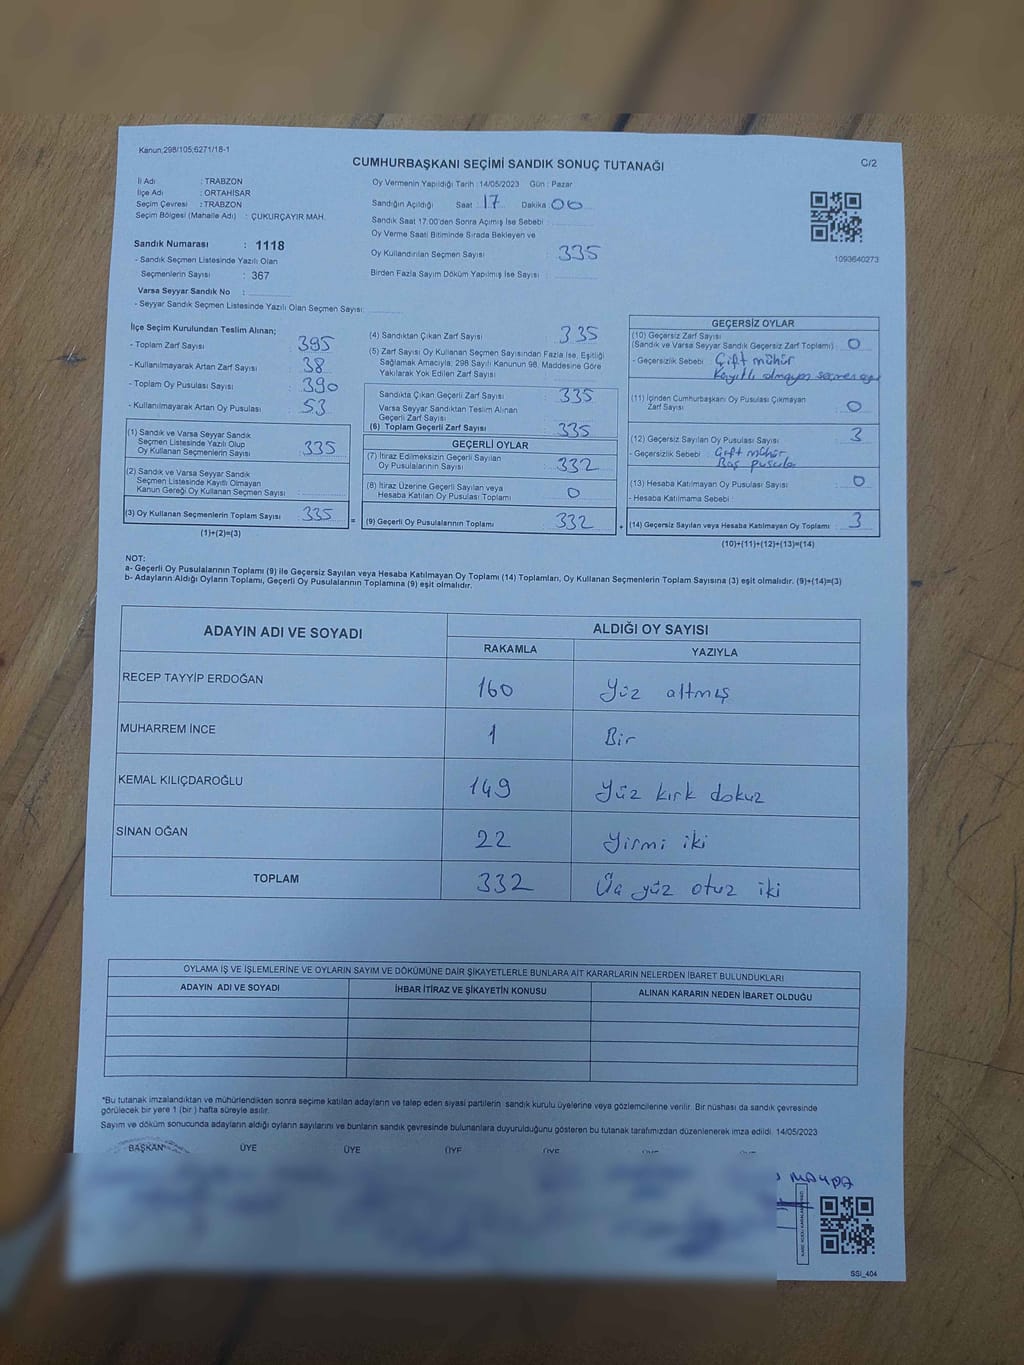 Kanun;298/105;6271/18-1
CUMHURBAŞKANI SEÇİMİ SANDIK SONUÇ TUTANAĞI
C/2
İl Adı : TRABZON
İlçe Adı : ORTAHİSAR
Seçim Çevresi : TRABZON
Seçim Bölgesi (Mahalle Adı) : ÇUKURÇAYIR MAH.
Sandık Numarası : 1118
- Sandık Seçmen Listesinde Yazılı Olan
Seçmenlerin Sayısı : 367
Varsa Seyyar Sandık No :
- Seyyar Sandık Seçmen Listesinde Yazılı Olan Seçmen Sayısı:
Oy Vermenin Yapıldığı Tarih : 14/05/2023 Gün : Pazar
Sandığın Açıldığı Saat 17 Dakika 00
Sandık Saat 17:00'den Sonra Açımış İse Sebebi :
Oy Verme Saati Bitiminde Sırada Bekleyen ve
Oy Kullandırılan Seçmen Sayısı : 335
Birden Fazla Sayım Döküm Yapılmış İse Sayısı :
1093640273
İlçe Seçim Kurulundan Teslim Alınan;
- Toplam Zarf Sayısı : 395
- Kullanılmayarak Artan Zarf Sayısı : 38
- Toplam Oy Pusulası Sayısı : 390
- Kullanılmayarak Artan Oy Pusulası : 53
(1) Sandık ve Varsa Seyyar Sandık
Seçmen Listesinde Yazılı Olup
Oy Kullanan Seçmenlerin Sayısı : 335
(2) Sandık ve Varsa Seyyar Sandık
Seçmen Listesinde Kayıtlı Olmayan
Kanun Gereği Oy Kullanan Seçmen Sayısı :
(3) Oy Kullanan Seçmenlerin Toplam Sayısı : 335
(1)+(2)=(3)
(4) Sandıktan Çıkan Zarf Sayısı : 335
(5) Zarf Sayısı Oy Kullanan Seçmen Sayısından Fazla İse, Eşitliği
Sağlamak Amacıyla; 298 Sayılı Kanunun 98. Maddesine Göre
Yakılarak Yok Edilen Zarf Sayısı :
Sandıkta Çıkan Geçerli Zarf Sayısı : 335
Varsa Seyyar Sandıktan Teslim Alınan
Geçerli Zarf Sayısı :
(6) Toplam Geçerli Zarf Sayısı : 335
GEÇERLİ OYLAR
(7) İtiraz Edilmeksizin Geçerli Sayılan
Oy Pusulalarının Sayısı : 332
(8) İtiraz Üzerine Geçerli Sayılan veya
Hesaba Katılan Oy Pusulası Toplamı : 0
= (9) Geçerli Oy Pusulalarının Toplamı : 332
GEÇERSİZ OYLAR
(10) Geçersiz Zarf Sayısı
(Sandık ve Varsa Seyyar Sandık Geçersiz Zarf Toplamı) : 0
- Geçersizlik Sebebi : Çift mühür
Kayıtlı olmayan seçmen
(11) İçinden Cumhurbaşkanı Oy Pusulası Çıkmayan
Zarf Sayısı : 0
(12) Geçersiz Sayılan Oy Pusulası Sayısı : 3
- Geçersizlik Sebebi : Çift mühür
Boş pusula
(13) Hesaba Katılmayan Oy Pusulası Sayısı : 0
- Hesaba Katılmama Sebebi :
+ (14) Geçersiz Sayılan veya Hesaba Katılmayan Oy Toplamı : 3
(10)+(11)+(12)+(13)=(14)
NOT:
a- Geçerli Oy Pusulalarının Toplamı (9) ile Geçersiz Sayılan veya Hesaba Katılmayan Oy Toplamı (14) Toplamları, Oy Kullanan Seçmenlerin Toplam Sayısına (3) eşit olmalıdır. (9)+(14)=(3)
b- Adayların Aldığı Oyların Toplamı, Geçerli Oy Pusulalarının Toplamına (9) eşit olmalıdır.
ADAYIN ADI VE SOYADI
ALDIĞI OY SAYISI
RAKAMLA YAZIYLA
RECEP TAYYİP ERDOĞAN 160 Yüz altmış
MUHARREM İNCE 1 Bir
KEMAL KILIÇDAROĞLU 149 Yüz kırk dokuz
SİNAN OĞAN 22 Yirmi iki
TOPLAM 332 Üç yüz otuz iki
OYLAMA İŞ VE İŞLEMLERİNE VE OYLARIN SAYIM VE DÖKÜMÜNE DAİR ŞİKAYETLERLE BUNLARA AİT KARARLARIN NELERDEN İBARET BULUNDUKLARI
ADAYIN ADI VE SOYADI İHBAR İTİRAZ VE ŞİKAYETİN KONUSU ALINAN KARARIN NEDEN İBARET OLDUĞU
*Bu tutanak imzalandıktan ve mühürlendikten sonra seçime katılan adayların ve talep eden siyasi partilerin sandık kurulu üyelerine veya gözlemcilerine verilir. Bir nüshası da sandık çevresinde
görülecek bir yere 1 (bir ) hafta süreyle asılır.
Sayım ve döküm sonucunda adayların aldığı oyların sayılarını ve bunların sandık çevresinde bulunanlara duyurulduğunu gösteren bu tutanak tarafımızdan düzenlenerek imza edildi. 14/05/2023
BAŞKAN ÜYE ÜYE ÜYE ÜYE
SSİ_404